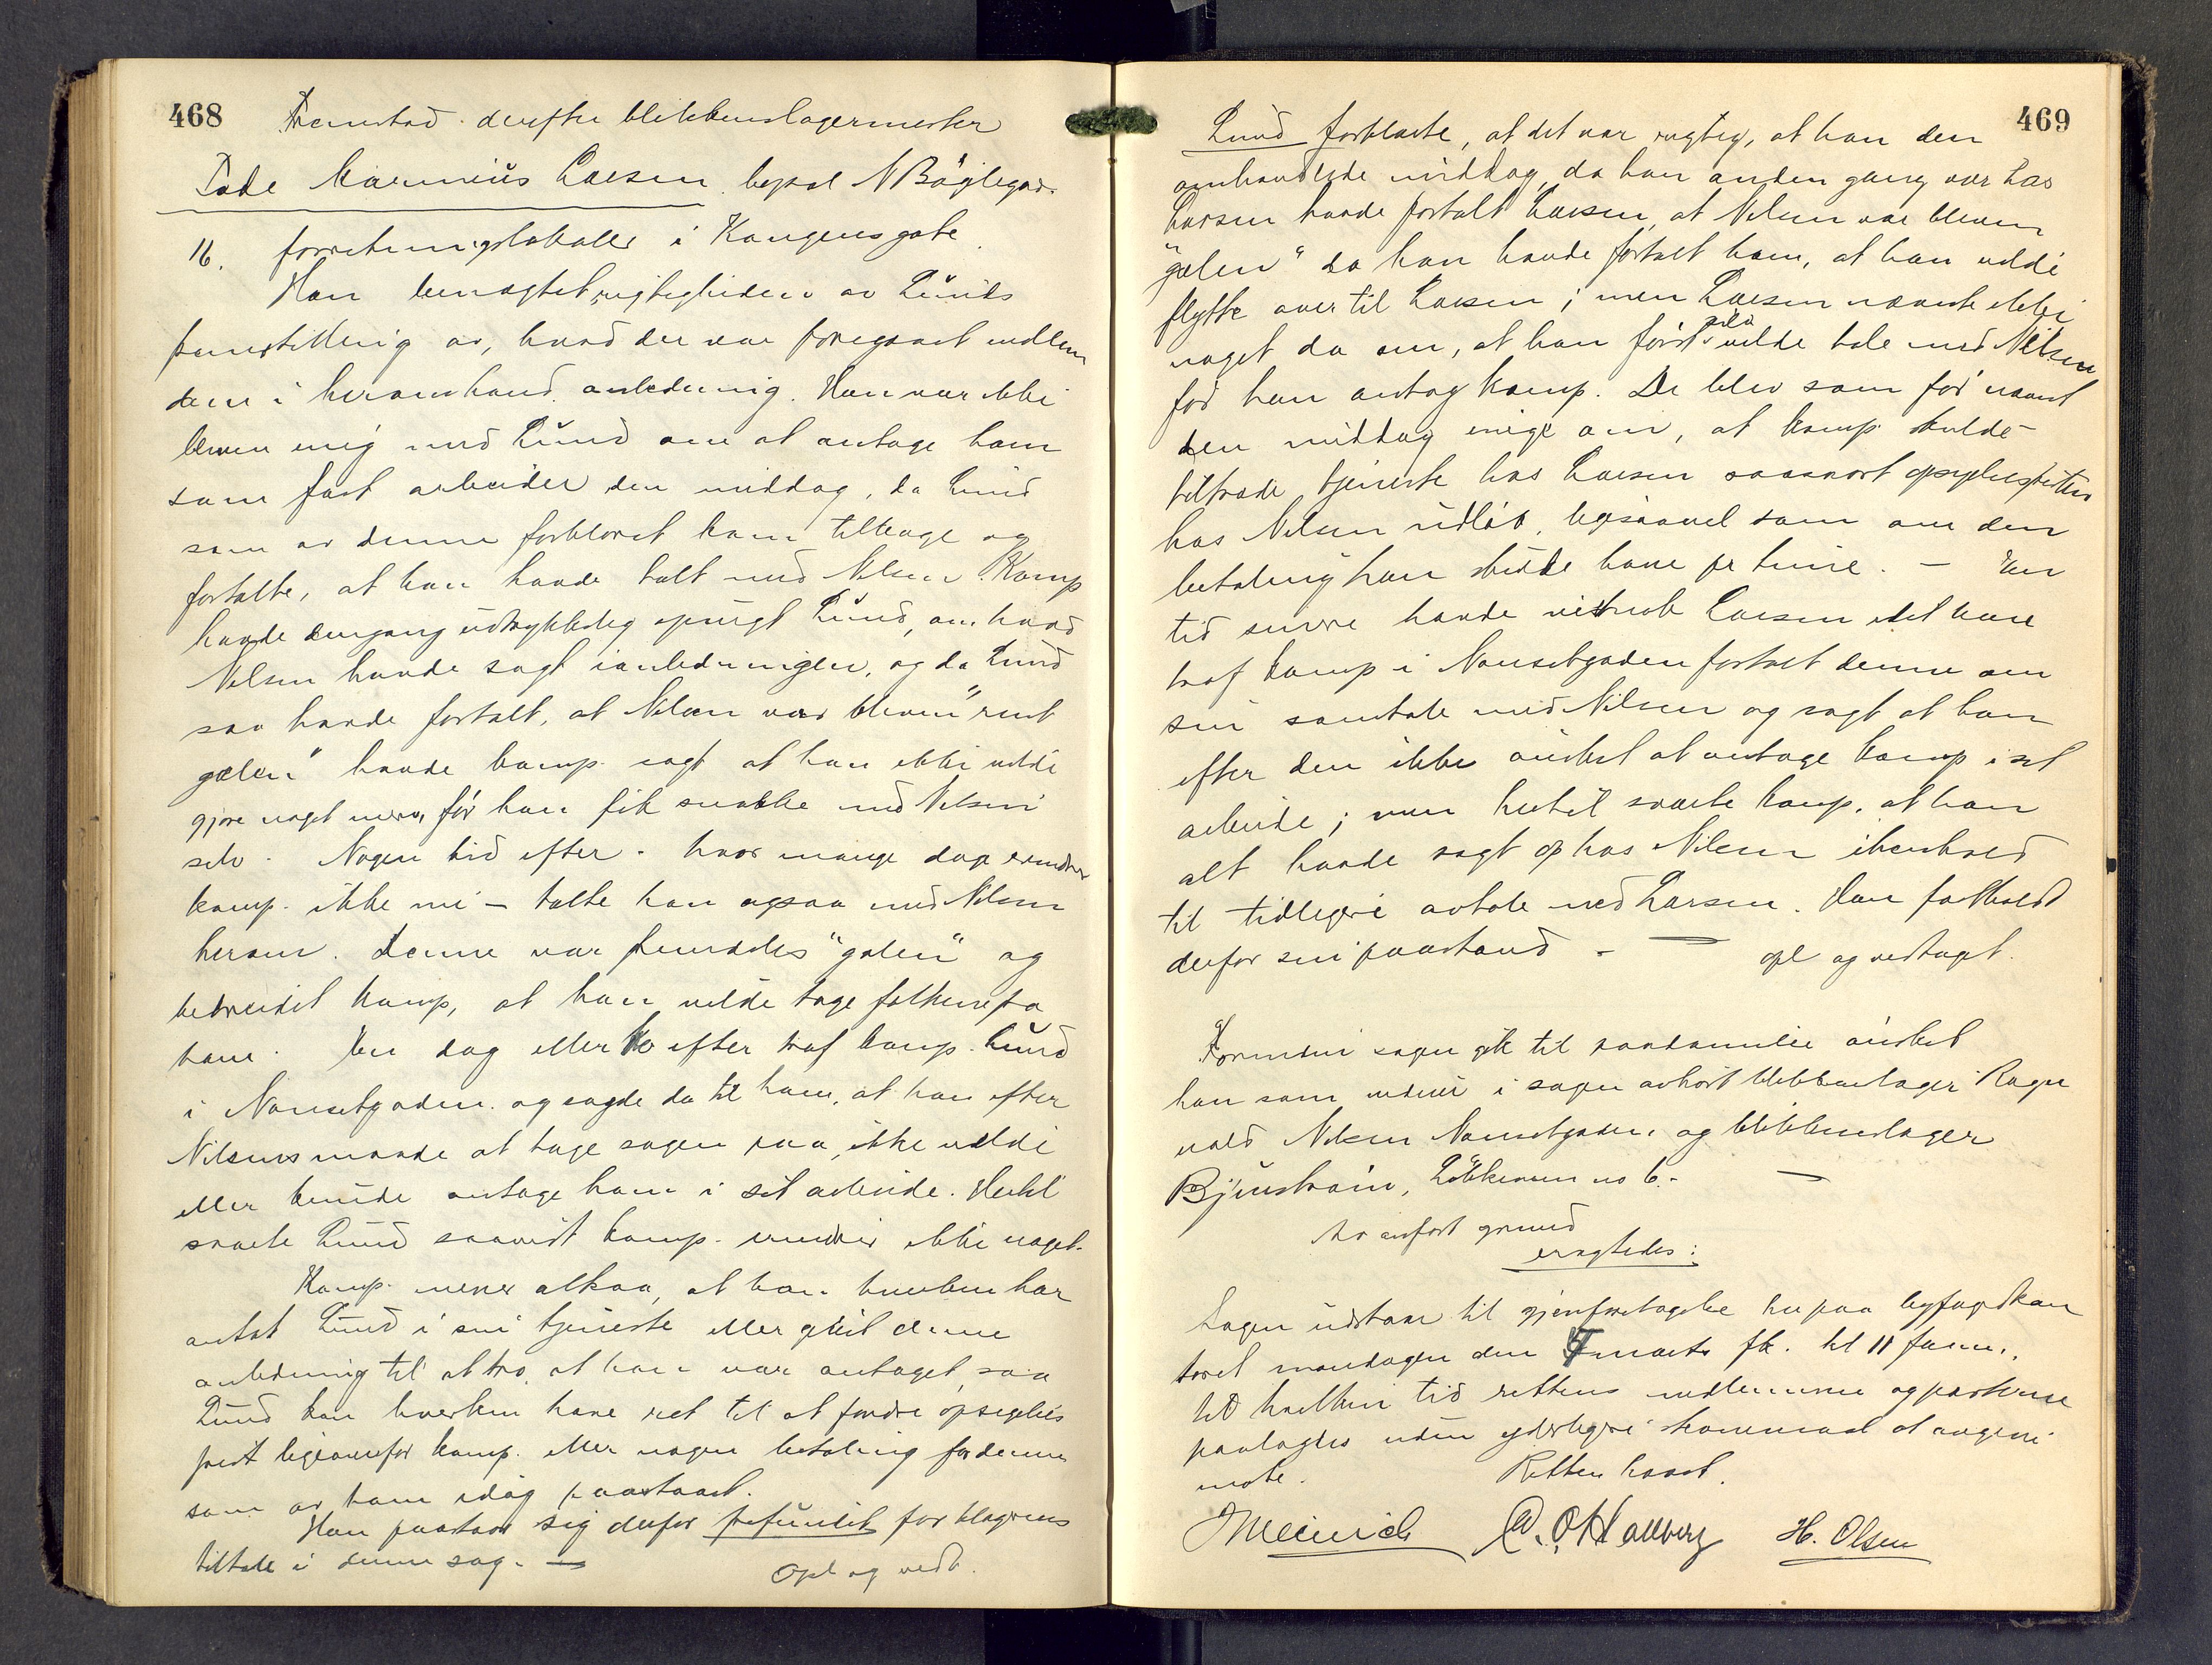 468
Fremstod derefter blikkenslagermester
Tode Marinius Larsen, bopæl N Bøglegade
16. forretningslokaler i Kongensgate.
Han benægtet rigtigheden av Lunds
fremstilling av, hvad der var foregaaet mellem
dem i heromhand. anledning. Han var ikke
bleven enig med Lund om at antage ham
som fast arbeider den middag, da Lund
som av denne forklaret kom tilbage og
fortalte, at han havde talt med Nilsen. Komp
havde dengang udtrykkelig spurgt Lund, om hvad
Nilsen havde sagt i anledningen, og da Lund
saa havde fortalt, at Nilsen var bleven "rent
galen" havde komp. sagt at han ikke vilde
gjøre noget mere, før han fik snakke med Nilsen
selv. Nogen tid efter - hvor mange dage erindrer
komp. ikke nu - talte han ogsaa med Nilsen
herom. Denne var fremdeles "galen" og
bebreidet komp, at han vilde tage folkene fra
ham. En dag eller to efter traf komp. Lund
i Nansetgaden og sagde da til ham, at han efter
Nilsens maade at tage sagen paa, ikke vilde
eller kunde antage ham i sit arbeide. Hertil
svarte Lund saavidt komp. erindrer ikke noget.
Komp. mener altsaa, at han hverken har
antat Lund i sin tjeneste eller givet denne
anledning til at tro, at han var antaget, saa
Lund kan hverken have ret til at fordre opsigelses
frist ligeoverfor komp. eller nogen betaling for denne
som av ham idag paastaaet.
Han paastaar sig derfor frifundet for klagerens
tiltale i denne sag. -
Opl og vedt.
469
Lund forklarte, at det var rigtig, at han den
omhandlede middag, da han anden gang var hos
Larsen havde fortalt Larsen, at Nilsen var bleven
"galen" da han havde fortalt ham, at han vilde
flytte over til Larsen; men Larsen nævnte ikke
noget da om, at han først selv vilde tale med Nilsen
før han antog komp. De blev som før nævnt
den middag enige om, at komp. skulde
tiltræde tjeneste hos Larsen saasnart opsigelsestiden
hos Nilsen utløb, ligesaavel som om den
betaling han skulde have pr time. - En
tid senere havde Larsen idet han
traf komp i Nansetgaden fortalt denne om
sin samtale med Nilsen og sagt at han
efter den ikke ønsket at antage komp i sit
arbeide; men hertil svarte komp, at han
alt havde sagt op hos Nilsen i henhold
til tidligere avtale med Larsen. Han fastholdt
derfor sin paastand - opl og vedtaget.
Forinden sagen gik til voteringen ønsket
han som vidne i sagen avhørt blikkenslager Ragn
vald Nilsen Nansetgaden, og blikkenslager
Bjørnstrøm, Løkkeveien no 6. -
Av anført grund
eragtedes:
Sagen udstaar til gjenforetagelse her paa byfogdkon
toret mandagen den 7 marts fk. kl 11 form.,
til hvilken tid rettens medlemmer og parterne
paalagdes uden yderligere tilkaldelse at angive
møte. Retten hævet.
J Meinich A. O Hallberg H. Olsen